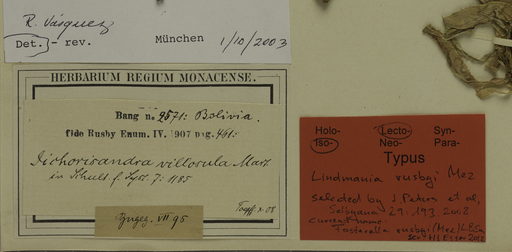 R. Vásquez
Det. - rev. München 1/10/2003
HERBARIUM REGIUM MONACENSE.
Bang n. 2571: Bolivia.
fide Rusby Enum. IV. 1907 pag. 461:
Dichorisandra villosula Mart.
in Schult. f. Syst. 7: 1185
Toepff. x. 08
Holo- Lecto- Syn-
Iso- Neo- Para-
Typus
Lindmania rusbyi Mez
selected by J. Peters et al,
Selbyana 29: 193. 2008
current name
Fosterella rusbyi (Mez) L.B.Sm.